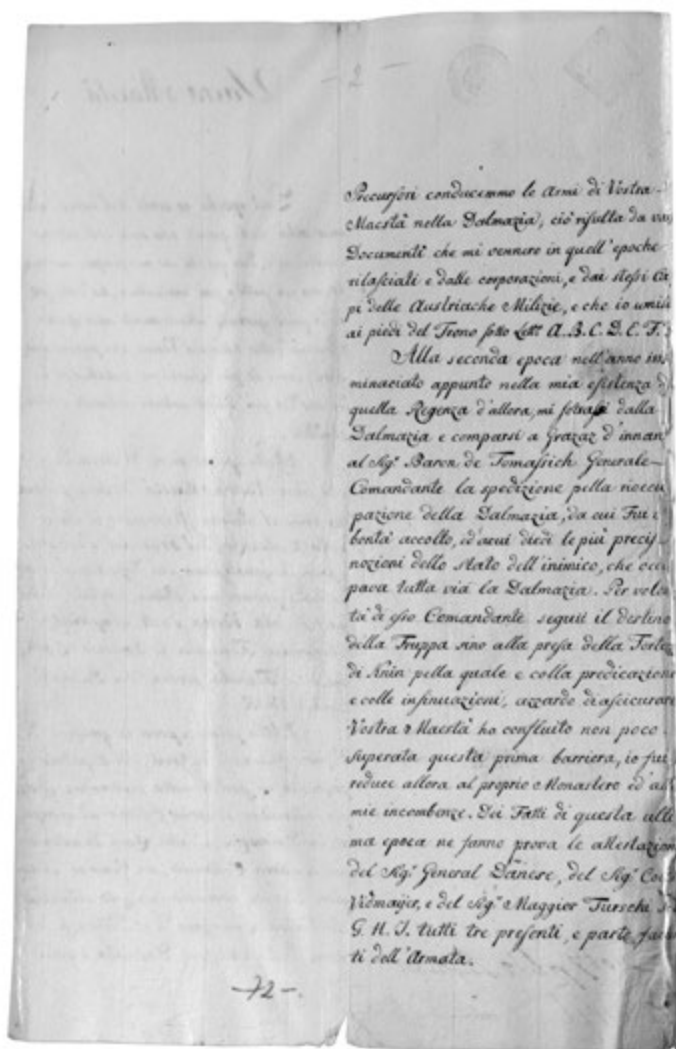 - 2 -
Precursori conducemmo le Armi di Vostra
Maestà nella Dalmazia, ciò risulta da var
Documenti che mi vennero in quell'epoche
rilasciati e dalle corporazioni, e dai stessi Ca
pi delle Austriache Milizie, e che io umil
ai piedi del Trono sotto Lett A.B.C.D.E.F.
Alla seconda epoca nell'anno
minaciato appunto nella mia esistenza d
quella Regenza d'allora, mi sotrassi dalla
Dalmazia e comparsi a Grazaz d'innan
al Sigr Baron de Tomassich Generale
Comandante la spedizione pella riocu
pazione della Dalmazia, da cui fui
bontà accolto, ed a cui diedi le più precise
nozioni dello stato dell'inimico, che occu
pava tutta via la Dalmazia. Per volon
tà di esso Comandante seguii il destino
della Truppa sino alla presa della Fortez
di Knin pella quale e colla predicazione
e colle insinuazioni, azzardo di asicurare
Vostra Maestà ho confluito non poco.
Superata questa prima barriera, io fui
reduce allora al proprio Monastero ed al
mie incombenze. Dei Fatti di questa ulti
ma epoca ne fanno prova le attestazion
del Sigr General Danese, del Sigr Co
Vidmajer, e del Sigr Maggior Turschi
G. M. I. tutti tre presenti, e parte facen
ti dell'Armata.
-72-.